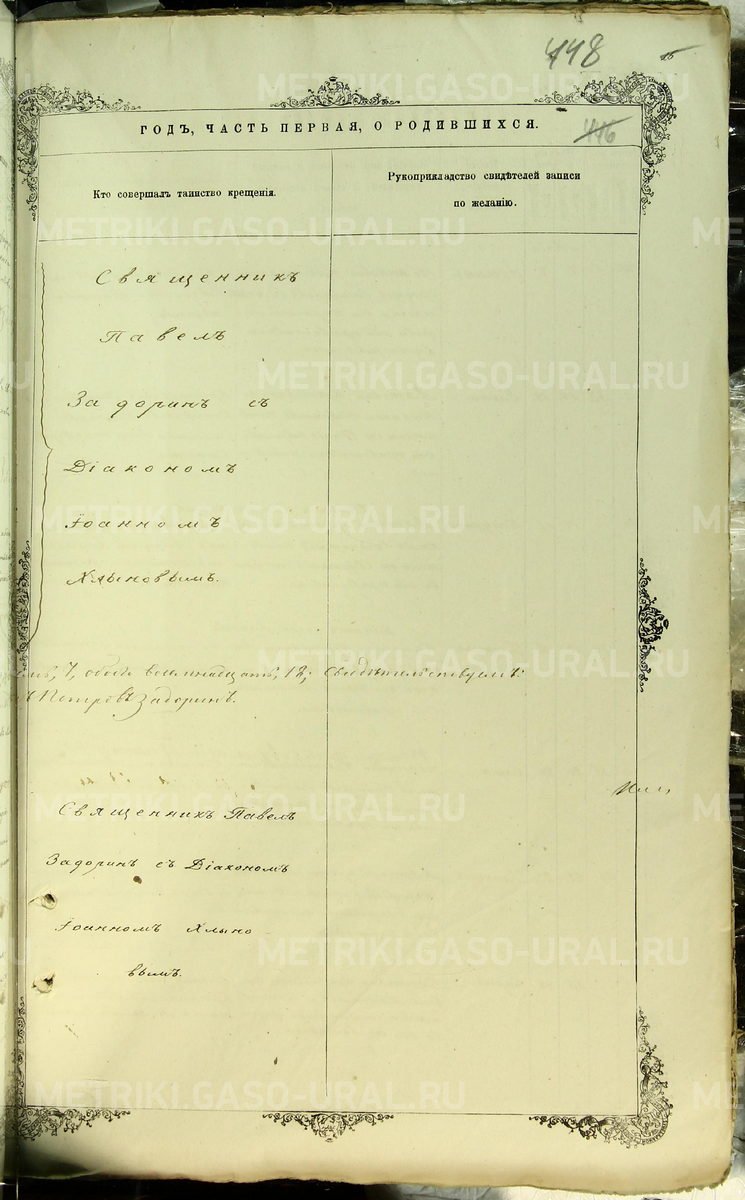 448
16
ГОДЪ, ЧАСТЬ ПЕРВАЯ, О РОДИВШИХСЯ.
416
Кто совершалъ таинство крещенія.
Рукоприкладство свидѣтелей записи
по желанію.
Священникъ
Павелъ
Задоринъ съ
Діакономъ
Іоанномъ
Хлыновымъ.
7, обоего восемнадцать, 18; Свидѣтельствуемъ:
Петровъ Задоринъ.
Священникъ Павелъ
Задоринъ съ Діакономъ
Іоанномъ Хлыно
вымъ.
METRIKI.GASO-URAL.RU